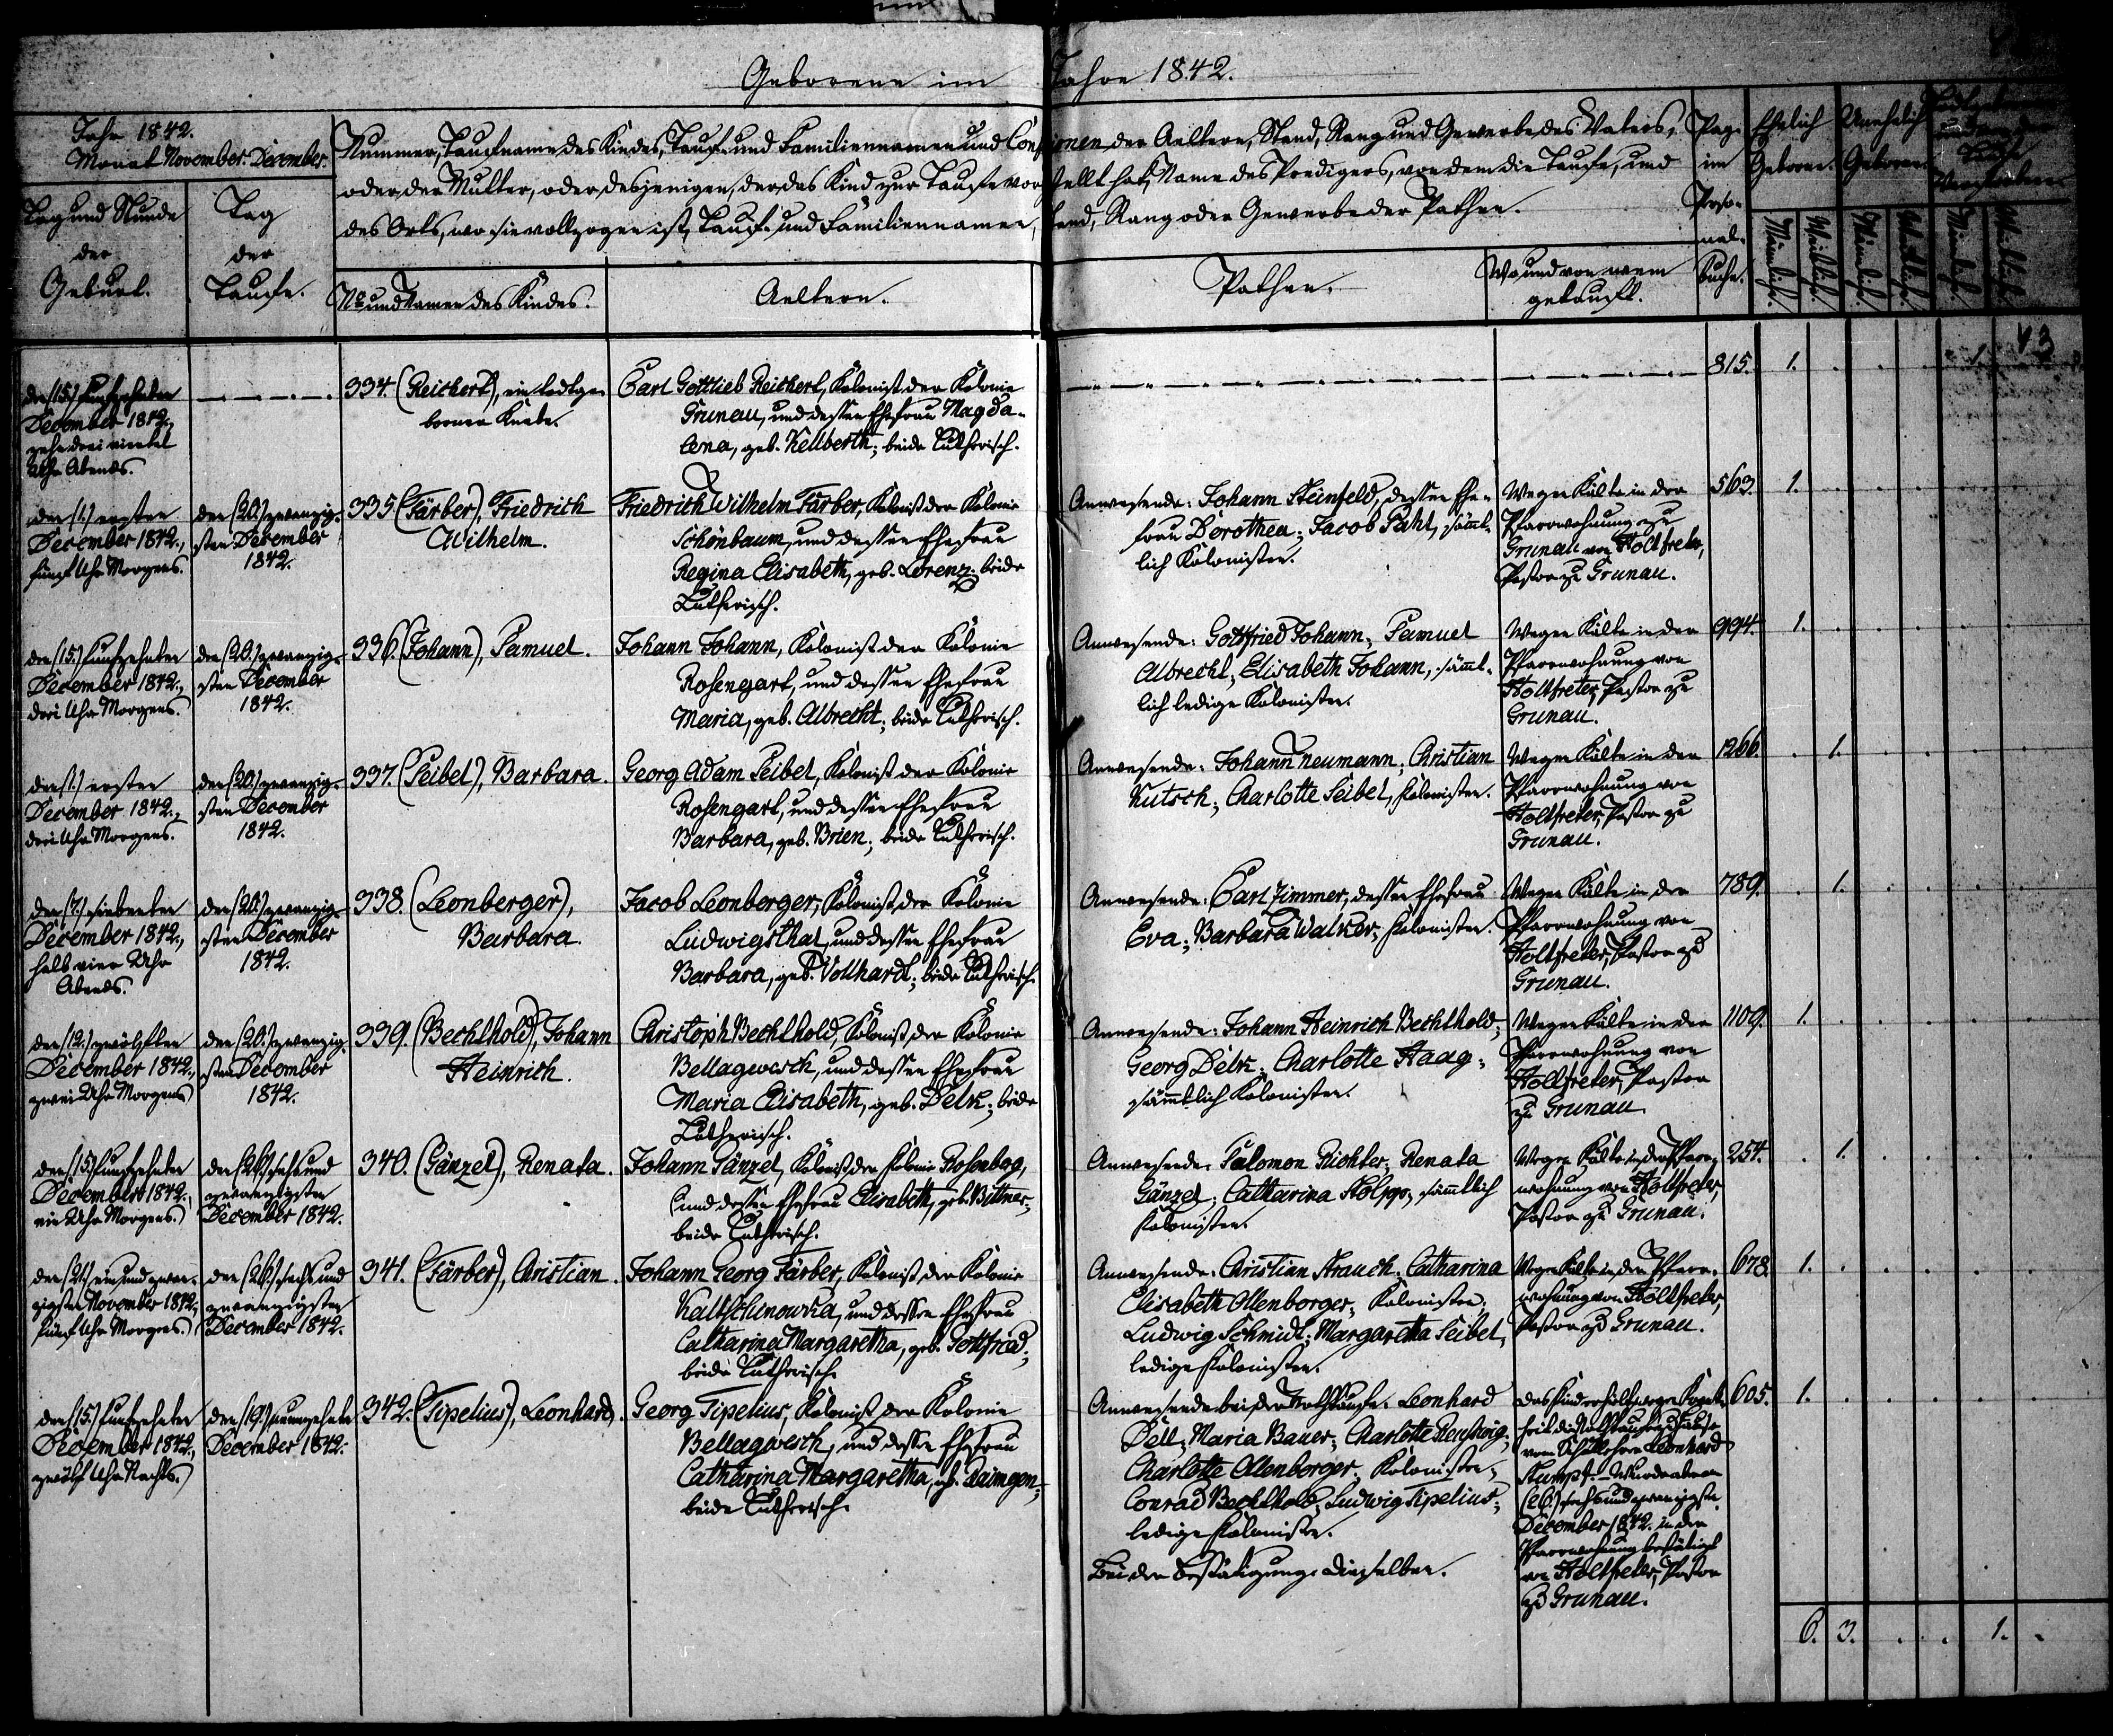 Geborene im Jahre 1842.
Jahr 1842.
Monat November. December.
Tag und Stunde
der
Geburt.
Tag
der
Taufe.
Nummer, Taufname des Kindes, Tauf- und Familiennamen und Confessionen der Aeltern, Stand, Rang und Gewerbe des Vaters,
oder der Mutter, oder desjenigen, der das Kind zur Taufe vorgestellt hat, Name des Predigers, von dem die Taufe, und
des Orts, wo sie vollzogen ist, Tauf- und Familiennamen, Stand, Rang oder Gewerbe der Pathen.
No und Namen des Kindes.
Aeltern.
Pathen.
Wo und von wem
getauft.
Pag.
im
Perso-
nal-
buche.
Ehelich
Geboren.
Unehelich
Geboren.
Todtgeborene
Männlich.
Weiblich.
Männlich.
Weiblich.
Männlich.
Weiblich.
den (15.) funfzehnten
December 1842.,
zehn drei viertel
Uhr Abends.
334. (Reichert), ein todtge-
borener Knabe.
Carl Gottlieb Reichert, Kolonist der Kolonie
Grunau, und dessen Ehefrau Magda-
lena, geb. Kellberth; beide Lutherisch.
815. 1. . . . 1.
den (1.) ersten
December 1842.,
fünf Uhr Morgens.
den (20.) zwanzig-
sten December
1842.
335. (Färber), Friedrich
Wilhelm.
Friedrich Wilhelm Färber, Kolonist der Kolonie
Schönbaum, und dessen Ehefrau
Regina Elisabeth, geb. Lorenz; beide
Lutherisch.
Anwesende: Johann Steinfeld, dessen Ehe-
frau Dorothea; Jacob Paht, sämt-
lich Kolonisten.
Wegen Kälte in der
Pfarrwohnung zu
Grunau von Holtfreter,
Pastor zu Grunau.
563. 1.
den (15.) funfzehnten
December 1842.,
drei Uhr Morgens.
den (20.) zwanzig-
sten December
1842.
336. (Johann), Samuel.
Johann Johann, Kolonist der Kolonie
Rosengart, und dessen Ehefrau
Maria, geb. Albrecht; beide Lutherisch.
Anwesende: Gottfried Johann; Samuel
Albrecht; Elisabeth Johann, sämt-
lich ledige Kolonisten.
Wegen Kälte in der
Pfarrwohnung von
Holtfreter, Pastor zu
Grunau.
994. 1.
den (1.) ersten
December 1842.,
drei Uhr Morgens.
den (20.) zwanzig-
sten December
1842.
337. (Seibel), Barbara.
Georg Adam Seibel, Kolonist der Kolonie
Rosengart, und dessen Ehefrau
Barbara, geb. Brien; beide Lutherisch.
Anwesende: Johann Neumann; Christian
Kutsch; Charlotte Seibel, Kolonisten.
Wegen Kälte in der
Pfarrwohnung von
Holtfreter, Pastor zu
Grunau.
1266. . 1.
den (7.) siebenten
December 1842.,
halb vier Uhr
Abends.
den (20.) zwanzig-
sten December
1842.
338. (Leonberger),
Barbara.
Jacob Leonberger, Kolonist der Kolonie
Ludwigsthal, und dessen Ehefrau
Barbara, geb. Vollhardt; beide Lutherisch.
Anwesende: Carl Zimmer, dessen Ehefrau
Eva; Barbara Walker, Kolonisten.
Wegen Kälte in der
Pfarrwohnung von
Holtfreter, Pastor zu
Grunau.
789. . 1.
den (12.) zwölften
December 1842.,
zwei Uhr Morgens
den (20.) zwanzig-
sten December
1842.
339. (Bechthold), Johann
Heinrich.
Christoph Bechthold, Kolonist der Kolonie
Bellagwesch, und dessen Ehefrau
Maria Elisabeth, geb. Delk; beide
Lutherisch.
Anwesende: Johann Heinrich Bechthold;
Georg Delk; Charlotte Haag;
sämmtlich Kolonisten.
Wegen Kälte in der
Pfarrwohnung von
Holtfreter, Pastor
zu Grunau.
1109. 1.
den (15.) funfzehnten
December 1842.,
ein Uhr Morgens.
den (26.) sechs und
zwanzigsten
December 1842.
340. (Gänzel), Renata.
Johann Gänzel, Kolonist der Kolonie Rosenberg,
und dessen Ehefrau Elisabeth, geb. Bittner;
beide Lutherisch.
Anwesende: Salomon Richter; Renata
Gänzel; Catharina Stolpp; sämmtlich
Kolonisten.
Wegen Kälte in der Pfarr-
wohnung von Holtfreter,
Pastor zu Grunau.
254. . 1.
den (21.) ein und zwan-
zigsten November 1842.,
fünf Uhr Morgens.
den (26.) sechs und
zwanzigsten
December 1842.
341. (Färber), Christian.
Johann Georg Färber, Kolonist der Kolonie
Kaltschinowka, und dessen Ehefrau
Catharina Margaretha, geb. Gottfried;
beide Lutherisch.
Anwesende: Christian Strauch; Catharina
Elisabeth Ollenberger; Kolonisten;
Ludwig Schmidt; Margaretha Seibel,
ledige Kolonisten.
Wegen Kälte in der Pfarr-
wohnung von Holtfreter,
Pastor zu Grunau.
678. 1.
den (15.) funfzehnten
December 1842.,
zwölf Uhr Nachts.
den (19.) neunzehnten
December 1842.
342. (Sipelius), Leonhard.
Georg Sipelius, Kolonist der Kolonie
Bellagwesch, und dessen Ehefrau
Catharina Margaretha, geb. Daimgen;
beide Lutherisch.
Anwesende bei der Nothtaufe: Leonhard
Dell; Maria Bauer; Charlotte
Charlotte Ollenberger, Kolonisten;
Conrad Bechthold; Ludwig Sipelius;
ledige Kolonisten.
Bei der Bestätigung: dieselben.
Das Kind erhielt wegen Krank-
heit die Nothtaufe zu Hause
vom Schullehrer Leonhard
Stumpf. - Wurde aber den
(26.) sechs und zwanzigsten
December 1842. in der
Pfarrwohnung bestätigt
von Holtfreter, Pastor
zu Grunau.
605. 1.
6. 3. . . 1. .